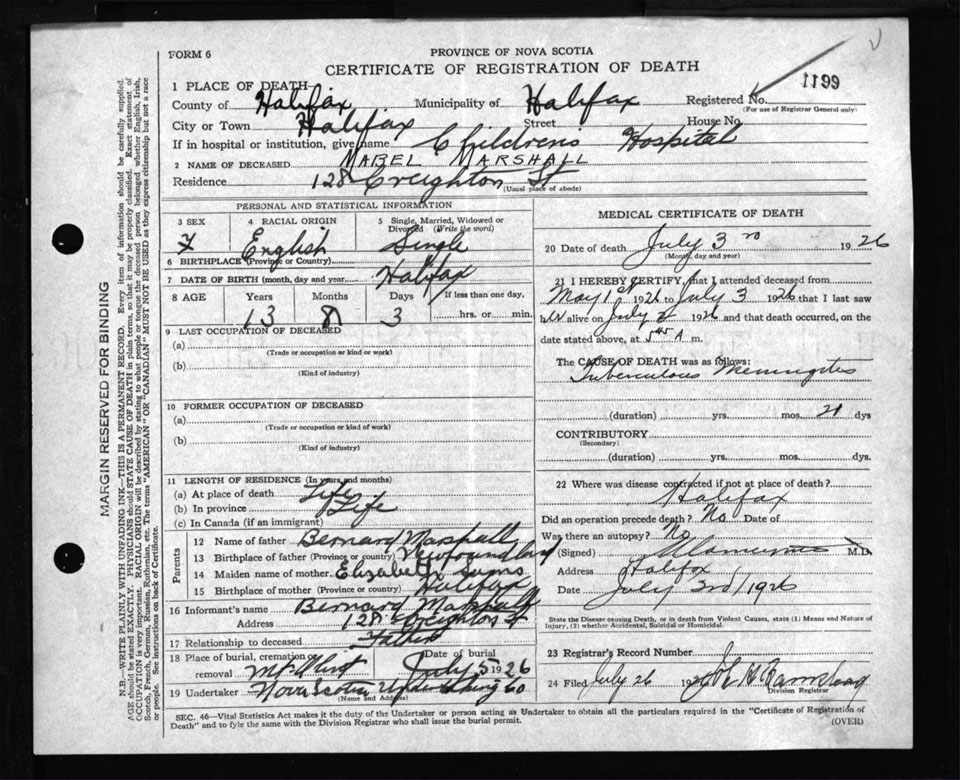 FORM 6
PROVINCE OF NOVA SCOTIA
CERTIFICATE OF REGISTRATION OF DEATH
1199
1 PLACE OF DEATH
County of Halifax Municipality of Halifax Registered No.
(For use of Registrar General only)
City or Town Halifax Street House No.
If in hospital or institution, give name Children's Hospital
2 NAME OF DECEASED MABEL MARSHALL
Residence 128 Creighton St
(Usual place of abode)
PERSONAL AND STATISTICAL INFORMATION
3 SEX 4 RACIAL ORIGIN 5 Single, Married, Widowed or Divorced (Write the word)
F English Single
6 BIRTHPLACE (Province or Country) Halifax
7 DATE OF BIRTH (month, day and year)
8 AGE Years Months Days If less than one day,
13 8 3 hrs. or min.
9 LAST OCCUPATION OF DECEASED
(a)
(Trade or occupation or kind or work)
(b)
(Kind of industry)
10 FORMER OCCUPATION OF DECEASED
(a)
(Trade or occupation or kind of work)
(b)
(Kind of industry)
11 LENGTH OF RESIDENCE (In years and months)
(a) At place of death Life
(b) In province Life
(c) In Canada (if an immigrant)
Parents
12 Name of father Bernard Marshall
13 Birthplace of father (Province or country) Newfoundland
14 Maiden name of mother Elizabeth
15 Birthplace of mother (Province or country) Halifax
16 Informant's name Bernard Marshall
Address 128 Creighton St
17 Relationship to deceased Father
18 Place of burial, cremation or removal Date of burial
Mt Olivet July 5 1926
19 Undertaker Nova Scotia Undertaking Co
(Name and Address)
MEDICAL CERTIFICATE OF DEATH
20 Date of death July 3rd 1926
(Month, day and year)
21 I HEREBY CERTIFY, that I attended deceased from
May 1st 1926 to July 3 1926 that I last saw
her alive on July 1926 and that death occurred, on the
date stated above, at 5 45 A m.
The CAUSE OF DEATH was as follows:
Tuberculous Meningitis
(duration) yrs. mos. 21 dys
CONTRIBUTORY
(Secondary)
(duration) yrs. mos. dys.
22 Where was disease contracted if not at place of death?
Halifax
Did an operation precede death? No Date of
Was there an autopsy? No
(Signed) M.D.
Address Halifax
Date July 3rd 1926
State the Disease causing Death, or in death from Violent Causes, state (1) Means and Nature of Injury, (2) whether Accidental, Suicidal or Homicidal.
23 Registrar's Record Number
24 Filed July 26 1926
Division Registrar
SEC. 46—Vital Statistics Act makes it the duty of the Undertaker or person acting as Undertaker to obtain all the particulars required in the "Certificate of Registration of
Death" and to fyle the same with the Division Registrar who shall issue the burial permit.
(OVER)
MARGIN RESERVED FOR BINDING
N.B.—WRITE PLAINLY WITH UNFADING INK—THIS IS A PERMANENT RECORD. Every item of information should be carefully supplied.
AGE should be stated EXACTLY. PHYSICIANS should STATE CAUSE OF DEATH in plain terms, so that it may be properly classified. Exact statement of
OCCUPATION is very important. RACIAL ORIGIN will be described by stating to what people or tongue the deceased person belonged whether English, Irish,
Scotch, French, German, Russian, Ruthenian, etc. The terms "AMERICAN" OR "CANADIAN" MUST NOT BE USED as they express citizenship but not a race
or people. See instructions on back of Certificate.